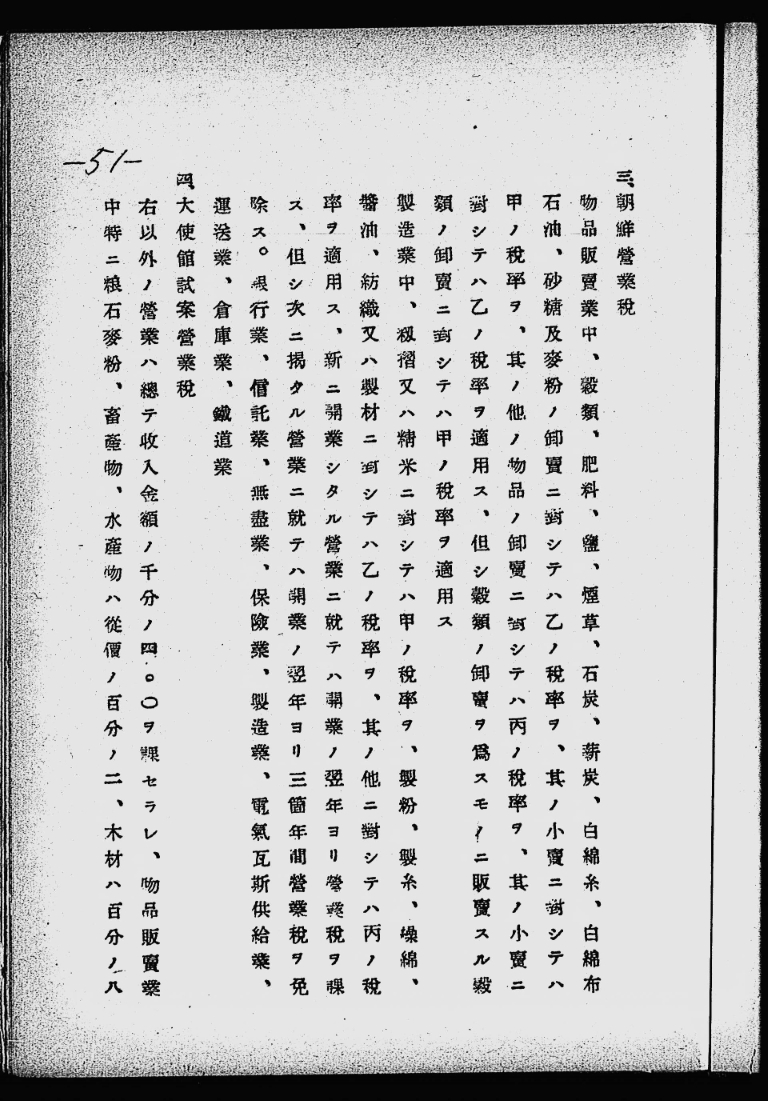 —51—
三、朝鮮營業稅
物品販賣業中、穀類、肥料、鹽、煙草、石炭、薪炭、白綿糸、白綿布
石油、砂糖及麥粉ノ卸賣ニ對シテハ乙ノ稅率ヲ、其ノ小賣ニ對シテハ
甲ノ稅率ヲ、其ノ他ノ物品ノ卸賣ニ對シテハ丙ノ稅率ヲ、其ノ小賣ニ
對シテハ乙ノ稅率ヲ適用ス、但シ穀類ノ卸賣ヲ爲スモノニ販賣スル穀
類ノ卸賣ニ對シテハ甲ノ稅率ヲ適用ス
製造業中、籾摺又ハ精米ニ對シテハ甲ノ稅率ヲ、製粉、製糸、繰綿、
醬油、紡織又ハ製材ニ對シテハ乙ノ稅率ヲ、其ノ他ニ對シテハ丙ノ稅
率ヲ適用ス、新ニ開業シタル營業ニ就テハ開業ノ翌年ヨリ營業稅ヲ課
ス、但シ次ニ揭タル營業ニ就テハ開業ノ翌年ヨリ三箇年間營業稅ヲ免
除ス。銀行業、信託業、無盡業、保險業、製造業、電氣瓦斯供給業、
運送業、倉庫業、鐵道業
四、大使館試案營業稅
右以外ノ營業ハ總テ收入金額ノ千分ノ四。〇ヲ課セラレ、物品販賣業
中特ニ粮石麥粉、畜產物、水產物ハ從價ノ百分ノ二、木材ハ百分ノ八